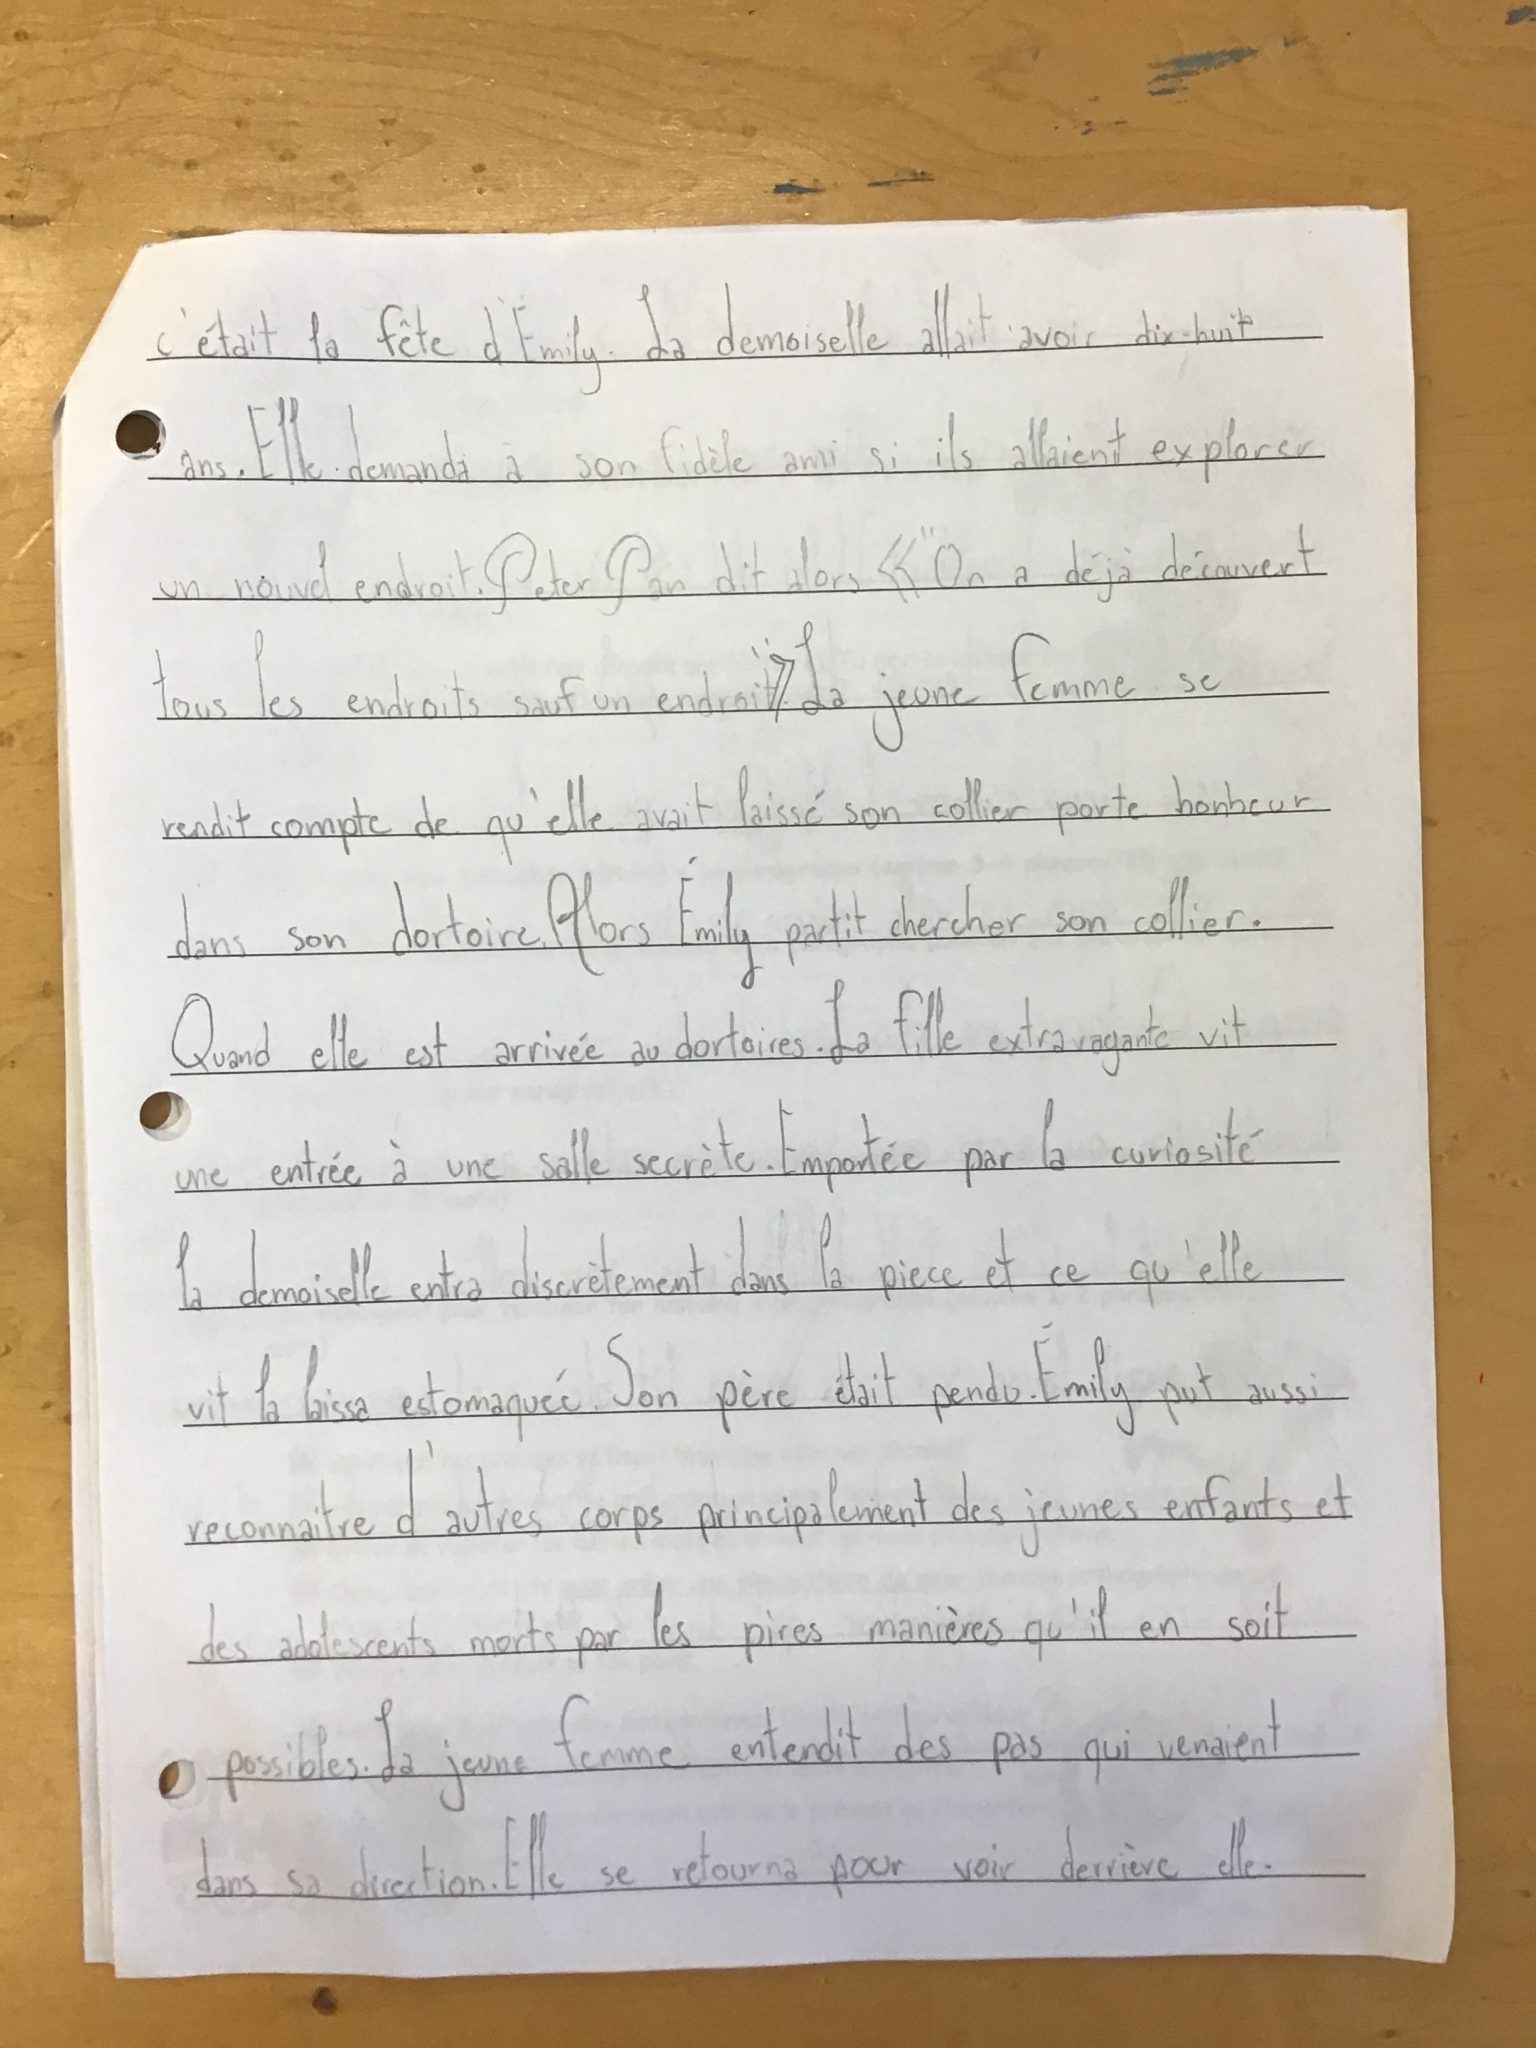 c'était la fête d'Émily. La demoiselle allait avoir dix-huit
ans. Elle demanda à son fidèle ami si ils allaient explorer
un nouvel endroit. Peter Pan dit alors «"On a déjà découvert
tous les endroits sauf un endroit"». La jeune femme se
rendit compte de qu'elle avait laissé son collier porte bonheur
dans son dortoire. Alors Émily partit chercher son collier.
Quand elle est arrivée au dortoires. La fille extravagante vit
une entrée à une salle secrète. Emportée par la curiosité
la demoiselle entra discrètement dans la piece et ce qu'elle
vit la laissa estomaquée. Son père était pendu. Émily put aussi
reconnaitre d'autres corps principalement des jeunes enfants et
des adolescents morts par les pires manières qu'il en soit
possibles. La jeune femme entendit des pas qui venaient
dans sa direction. Elle se retourna pour voir derrière elle.